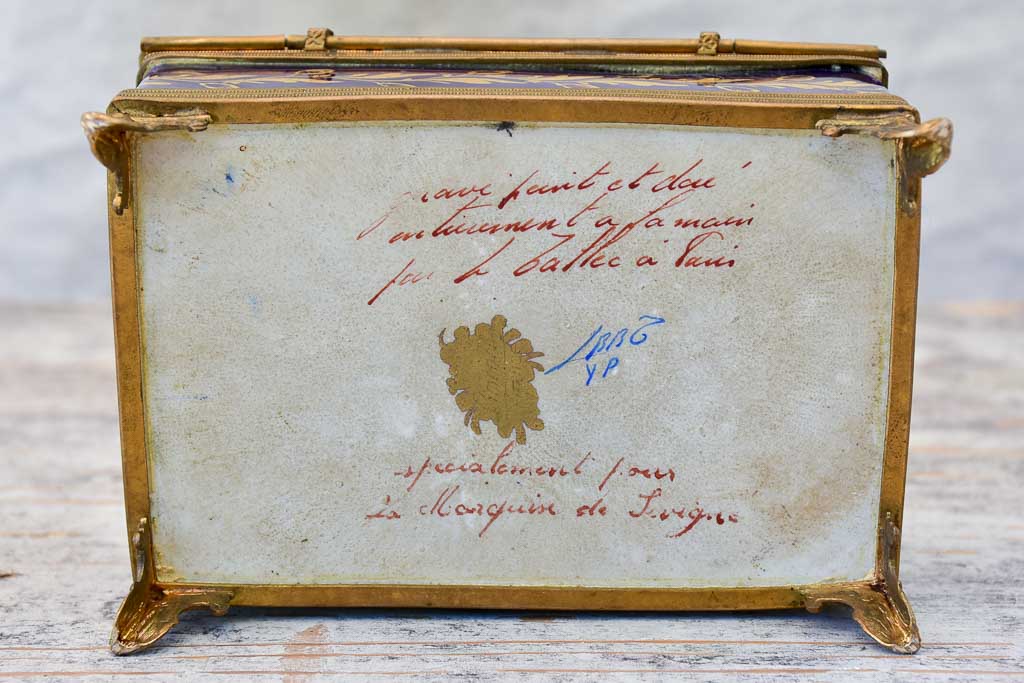 gravé peint et doré
entierement a la main
par Le Tallec à Paris
YP
specialement pour
La Marquise de Sevigne